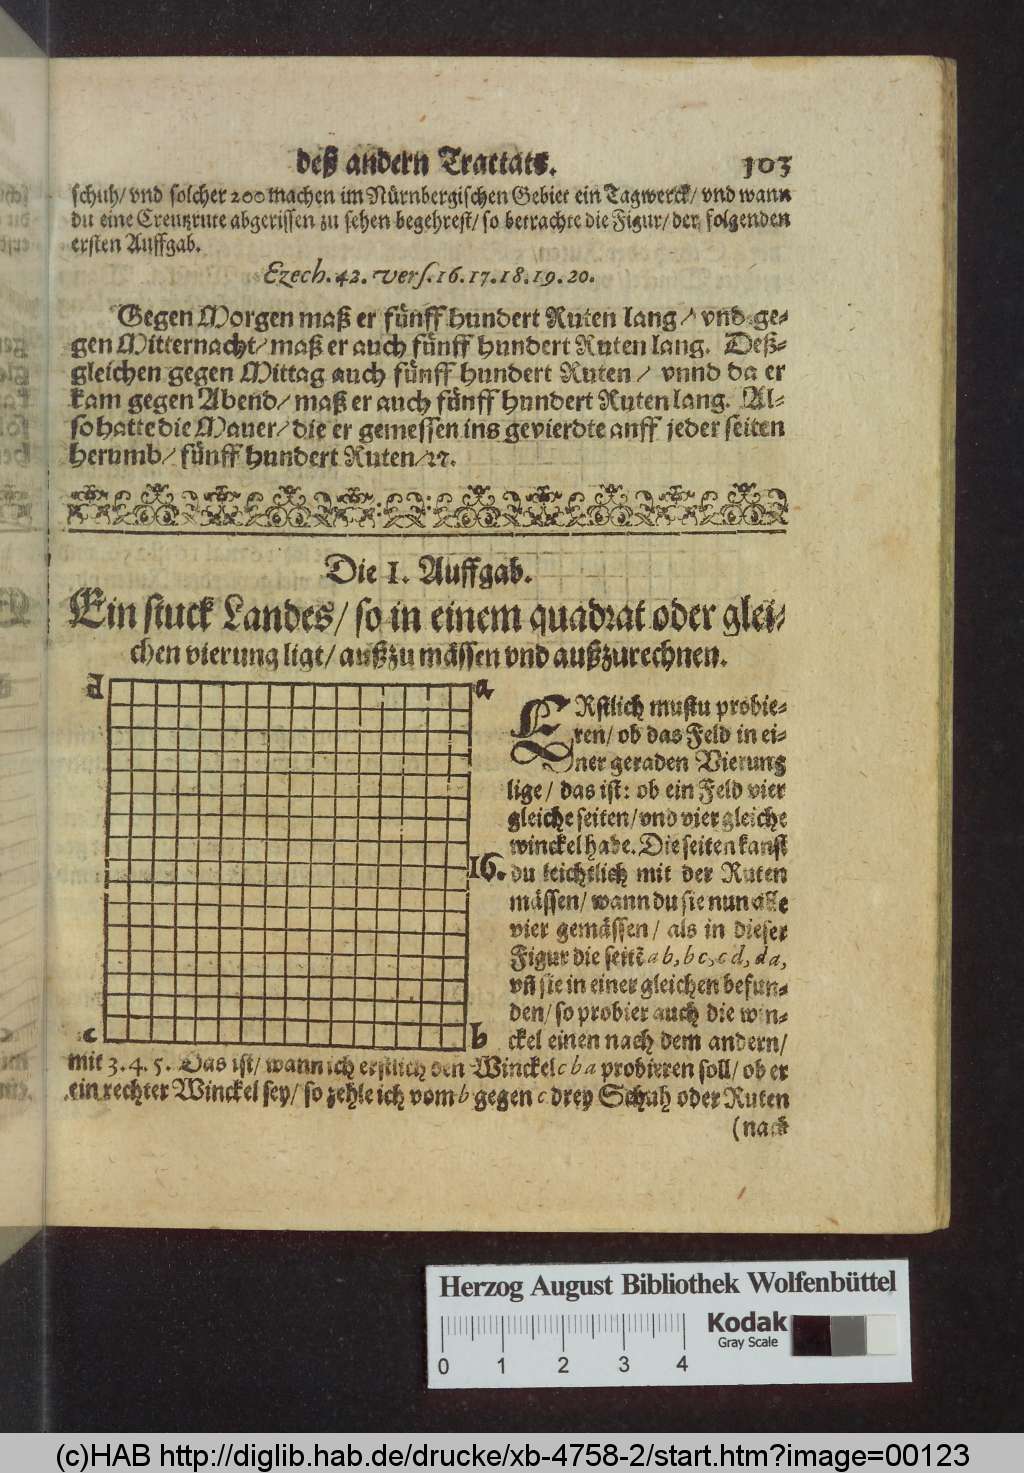 deß andern Tractats. 103
schuh/ vnd solcher 200 machen im Nürnbergischen Gebiet ein Tagwerck/ vnd wann
du eine Creutzrute abgerissen zu sehen begehrest/ so betrachte die Figur/ der folgenden
ersten Auffgab.
Ezech. 42. vers. 16. 17. 18. 19. 20.
Gegen Morgen maß er fünff hundert Ruten lang/ vnd ge-
gen Mitternacht/ maß er auch fünff hundert Ruten lang. Deß-
gleichen gegen Mittag auch fünff hundert Ruten/ vnnd da er
kam gegen Abend/ maß er auch fünff hundert Ruten lang. Al-
so hatte die Mauer/ die er gemessen ins gevierdte auff jeder seiten
herumb/ fünff hundert Ruten/ ꝛc.
Die I. Auffgab.
Ein stuck Landes/ so in einem quadrat oder glei-
chen vierung ligt/ außzu mässen vnd außzurechnen.
d a
ERstlich mustu probie-
ren/ ob das Feld in ei-
ner geraden Vierung
lige/ das ist: ob ein Feld vier
gleiche seiten/ vnd vier gleiche
winckel habe. Die seiten kanst
16. du leichtlich mit der Ruten
mässen/ wann du sie nun alle
vier gemässen/ als in dieser
Figur die seitẽ a b, b c, c d, d a,
vñ sie in einer gleichen befun-
den/ so probier auch die win-
c b
ckel einen nach dem andern/
mit 3. 4. 5. Das ist/ wann ich erstlich den Winckel c b a probieren soll/ ob er
ein rechter Winckel sey/ so zehle ich vom b gegen c drey Schuh oder Ruten
(nach
Herzog August Bibliothek Wolfenbüttel
Kodak
Gray Scale
0 1 2 3 4
(c)HAB http://diglib.hab.de/drucke/xb-4758-2/start.htm?image=00123